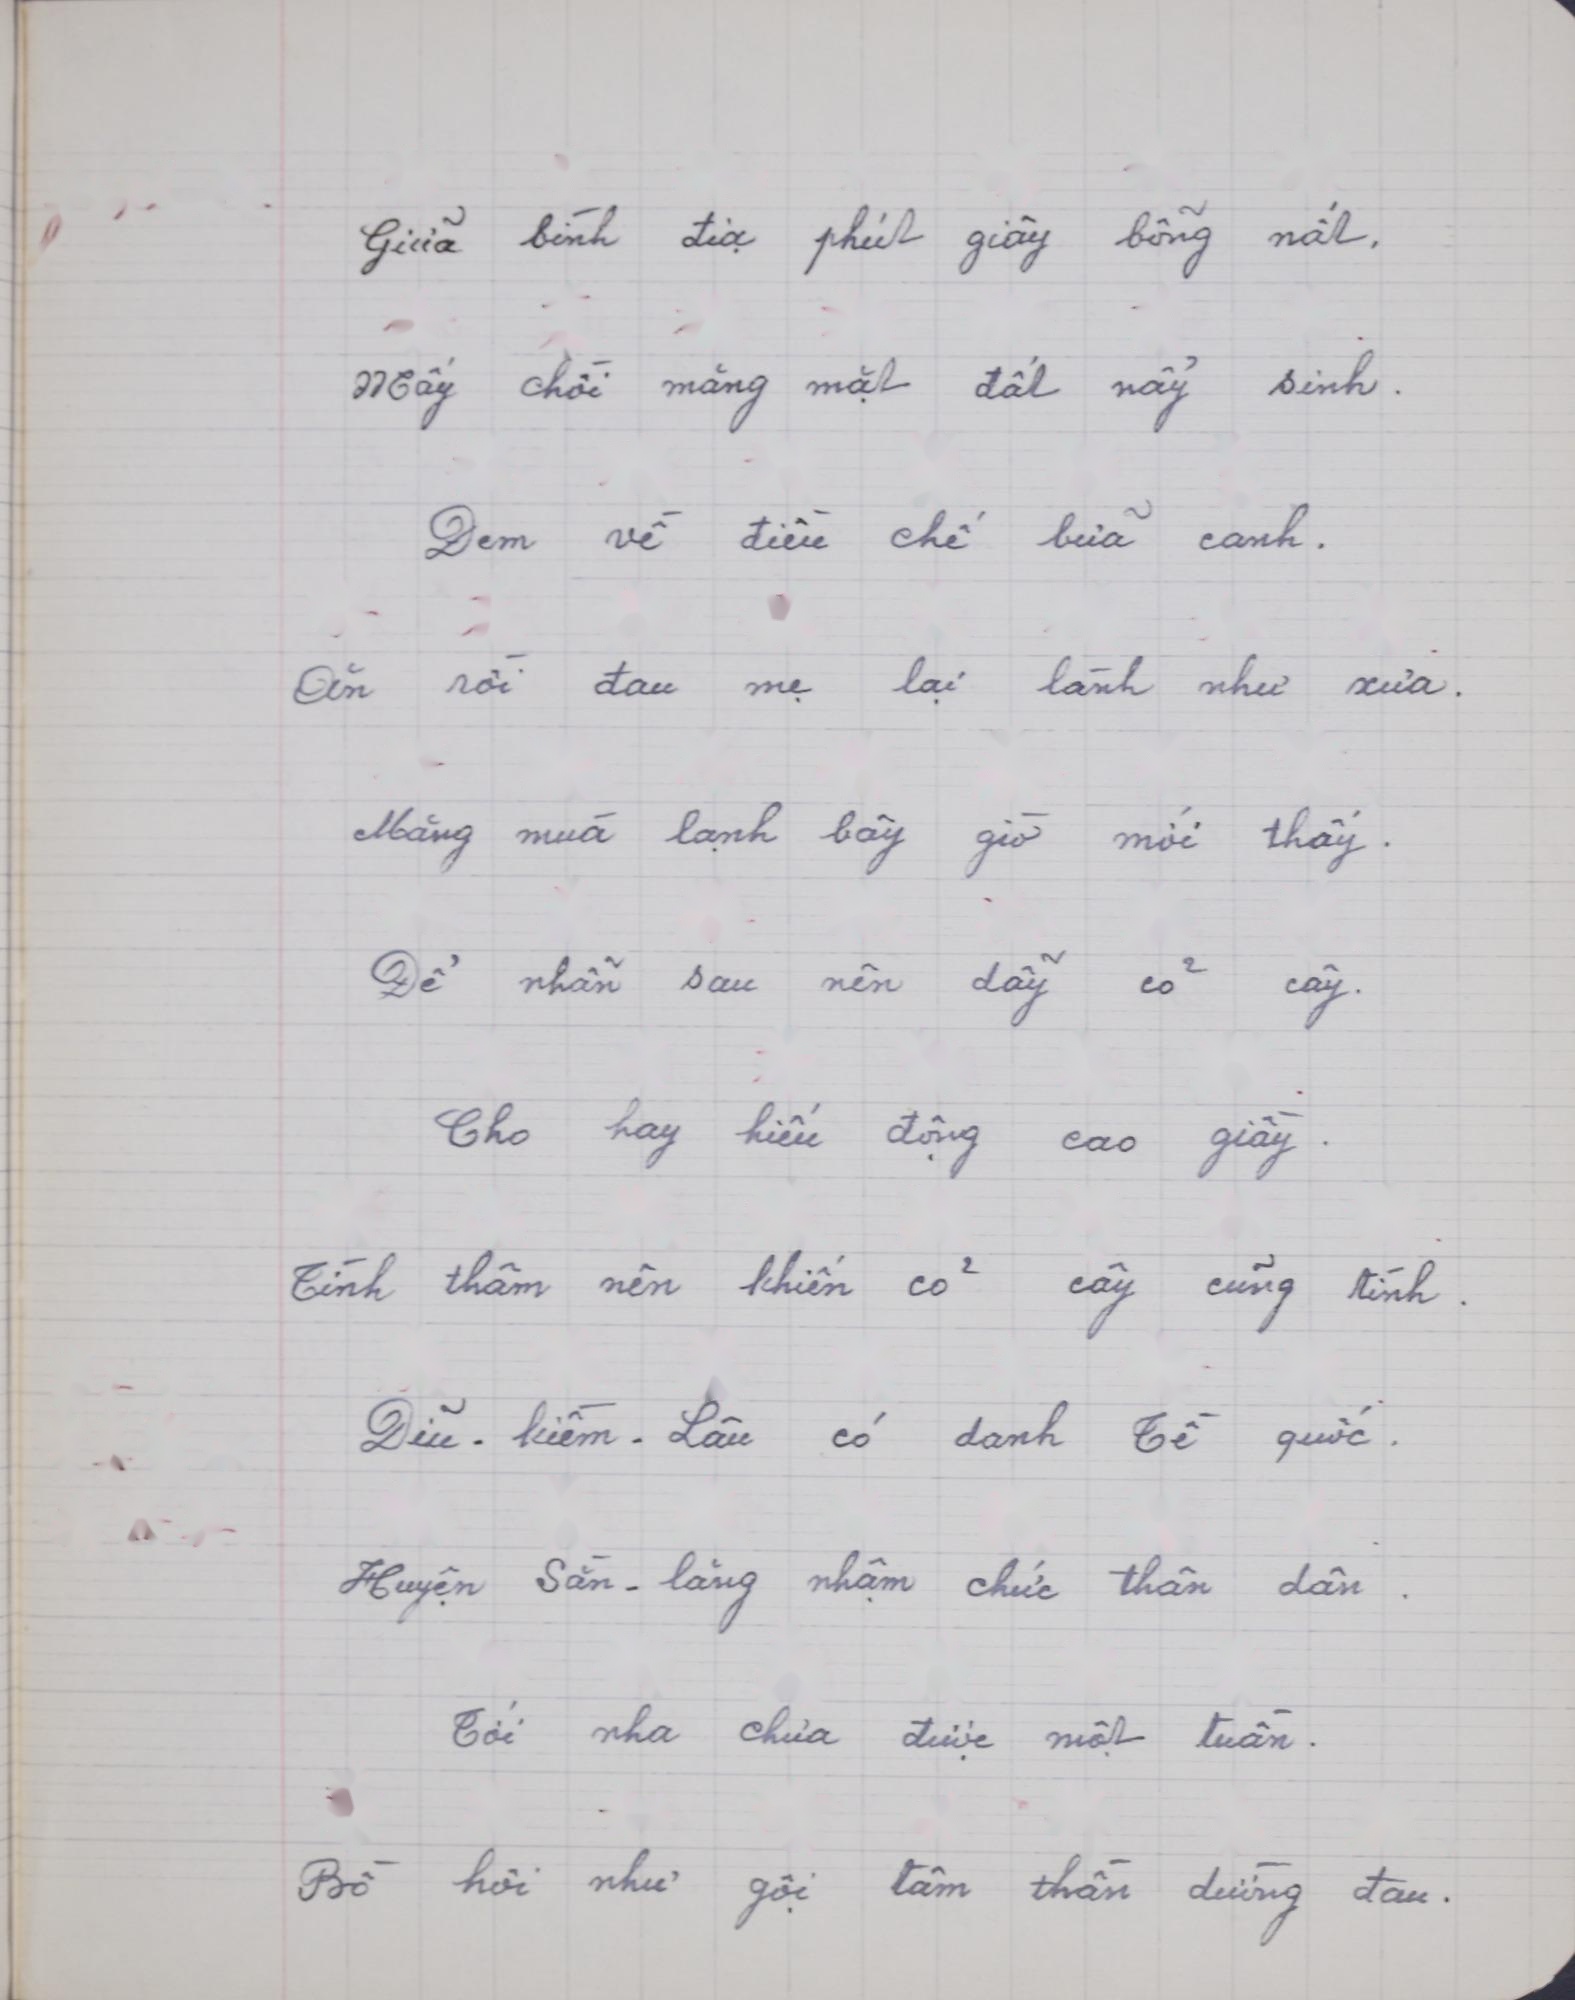 Giữa bình địa phút giây bỗng nất.
Mấy chồi măng mặt đất nẩy sinh.
Đem về điều chế bữa canh.
Ăn rồi đau mẹ lại lành như xưa.
Măng muà lạnh bây giờ mới thấy.
Để nhẫn sau nên dẫy cỏ cây.
Cho hay hiếu động cao giầy.
Tình thâm nên khiến cỏ cây cũng tình.
Diữ - kiềm - Lâu có danh Tề quốc.
Huyện Sằn - lăng nhậm chức thân dân.
Tới nha chưa được một tuần.
Bồ hôi như gội tâm thần dường đau.